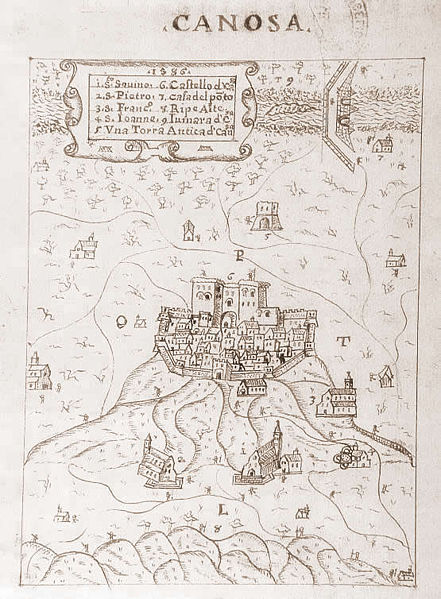 CANOSA.
1586
1. S. Sauino. 6. Castello d'Ca
2. S. Pietro. 7. casa del pōto
3. S. Franc. 8. Ripe Alte
4 S. Ioanne. 9 fiumara d'
5 Vna Torra Antica d'Ca
9
7
5
R
6
O
T
4
3
1
2
L
8